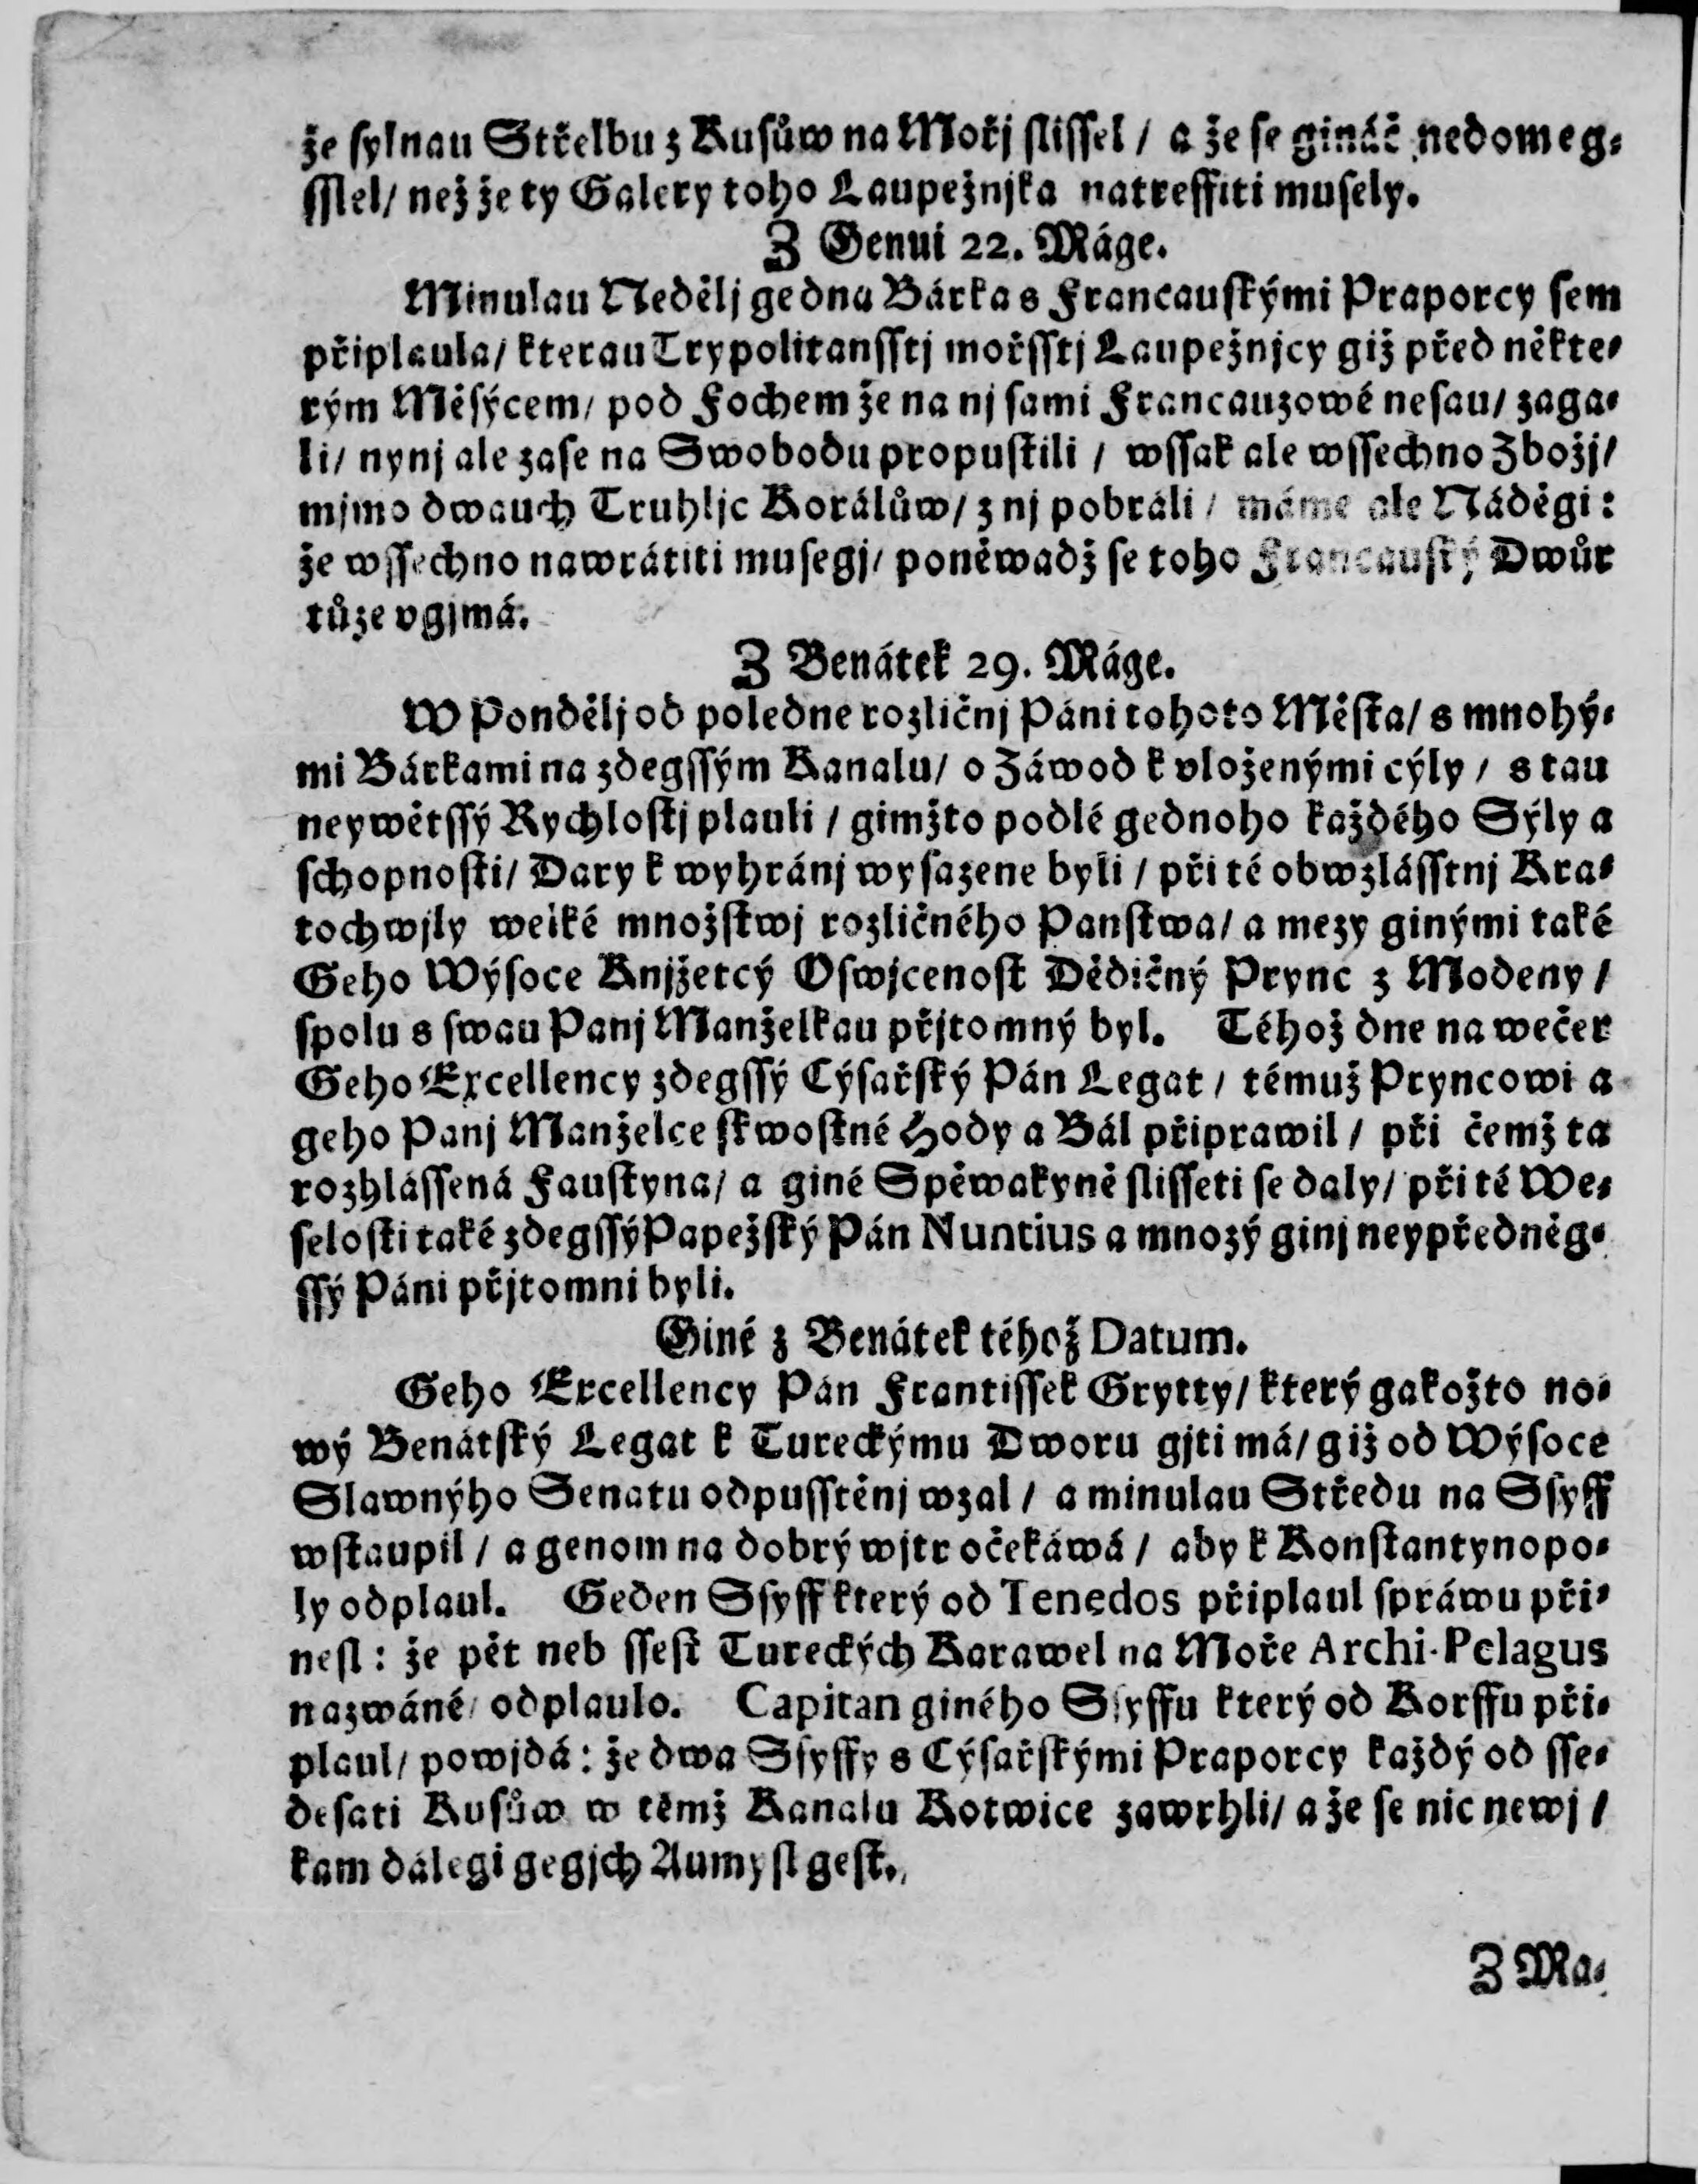 že sylnau Střelbu z Kusůw na Mořj slissel / a že se gináč nedomeg-
sslel / než že ty Galery toho Laupežnjka natreffiti musely.
Z Genui 22. Máge.
Minulau Nedělj gedna Bárka s Francauskými Praporcy sem
připlaula / kterau Trypolitansstj mořsstj Laupežnjcy giž před někte-
rým Měsýcem / pod Fochem že na nj sami Francauzowé nesau / zaga-
li / nynj ale zase na Swobodu propustili / wssak ale wssechno Zbožj /
mjmo dwauch Truhljc Korálůw / z nj pobrali / máme ale Náděgi:
že wssechno nawrátiti musegj / poněwadž se toho Francauský Dwůr
tůze vgjmá.
Z Benátek 29. Máge.
W Pondělj od poledne rozličnj Páni tohoto Města / s mnohý-
mi Bárkami na zdegssým Kanalu / o Záwod k vloženými cýly / s tau
neywětssý Rychlostj plauli / gimžto podlé gednoho každého Sýly a
schopnosti / Dary k wyhránj wysazene byli / při té obwzlásstnj Kra-
tochwjly welké množstwj rozličného Panstwa / a mezy ginými také
Geho Wýsoce Knjžetcý Oswjcenost Dědičný Prync z Modeny /
spolu s swau Panj Manželkau přjtomný byl. Téhož dne na wečer
Geho Excellency zdegssý Cýsařský Pán Legat / témuž Pryncowi a
geho Panj Manželce skwostné Hody a Bál připrawil / při čemž ta
rozhlássená Faustyna / a giné Spěwakyně slisseti se daly / při té We-
selosti také zdegssý Papežský Pán Nuntius a mnozý ginj neypředněg-
ssý Páni přjtomni byli.
Giné z Benátek téhož Datum.
Geho Excellency Pán Frantissek Grytty / který gakožto no-
wý Benátský Legat k Tureckýmu Dworu gjti má / giž od Wýsoce
Slawnýho Senatu odpusstěnj wzal / a minulau Středu na Ssyff
wstaupil / a genom na dobrý wjtr očekáwá / aby k Konstantynopo-
ly odplaul. Geden Ssyff který od Tenedos připlaul spráwu při-
nesl: že pět neb ssest Tureckých Karawel na Moře Archi-Pelagus
nazwáné / odplaulo. Capitan giného Ssyffu který od Korffu při-
plaul / powjdá: že dwa Ssyffy s Cýsařskými Praporcy každý od sse-
desati Kusůw w témž Kanalu Kotwice zawrhli / a že se nic newj /
kam dálegi gegjch Aumysl gest.
Z Ma-